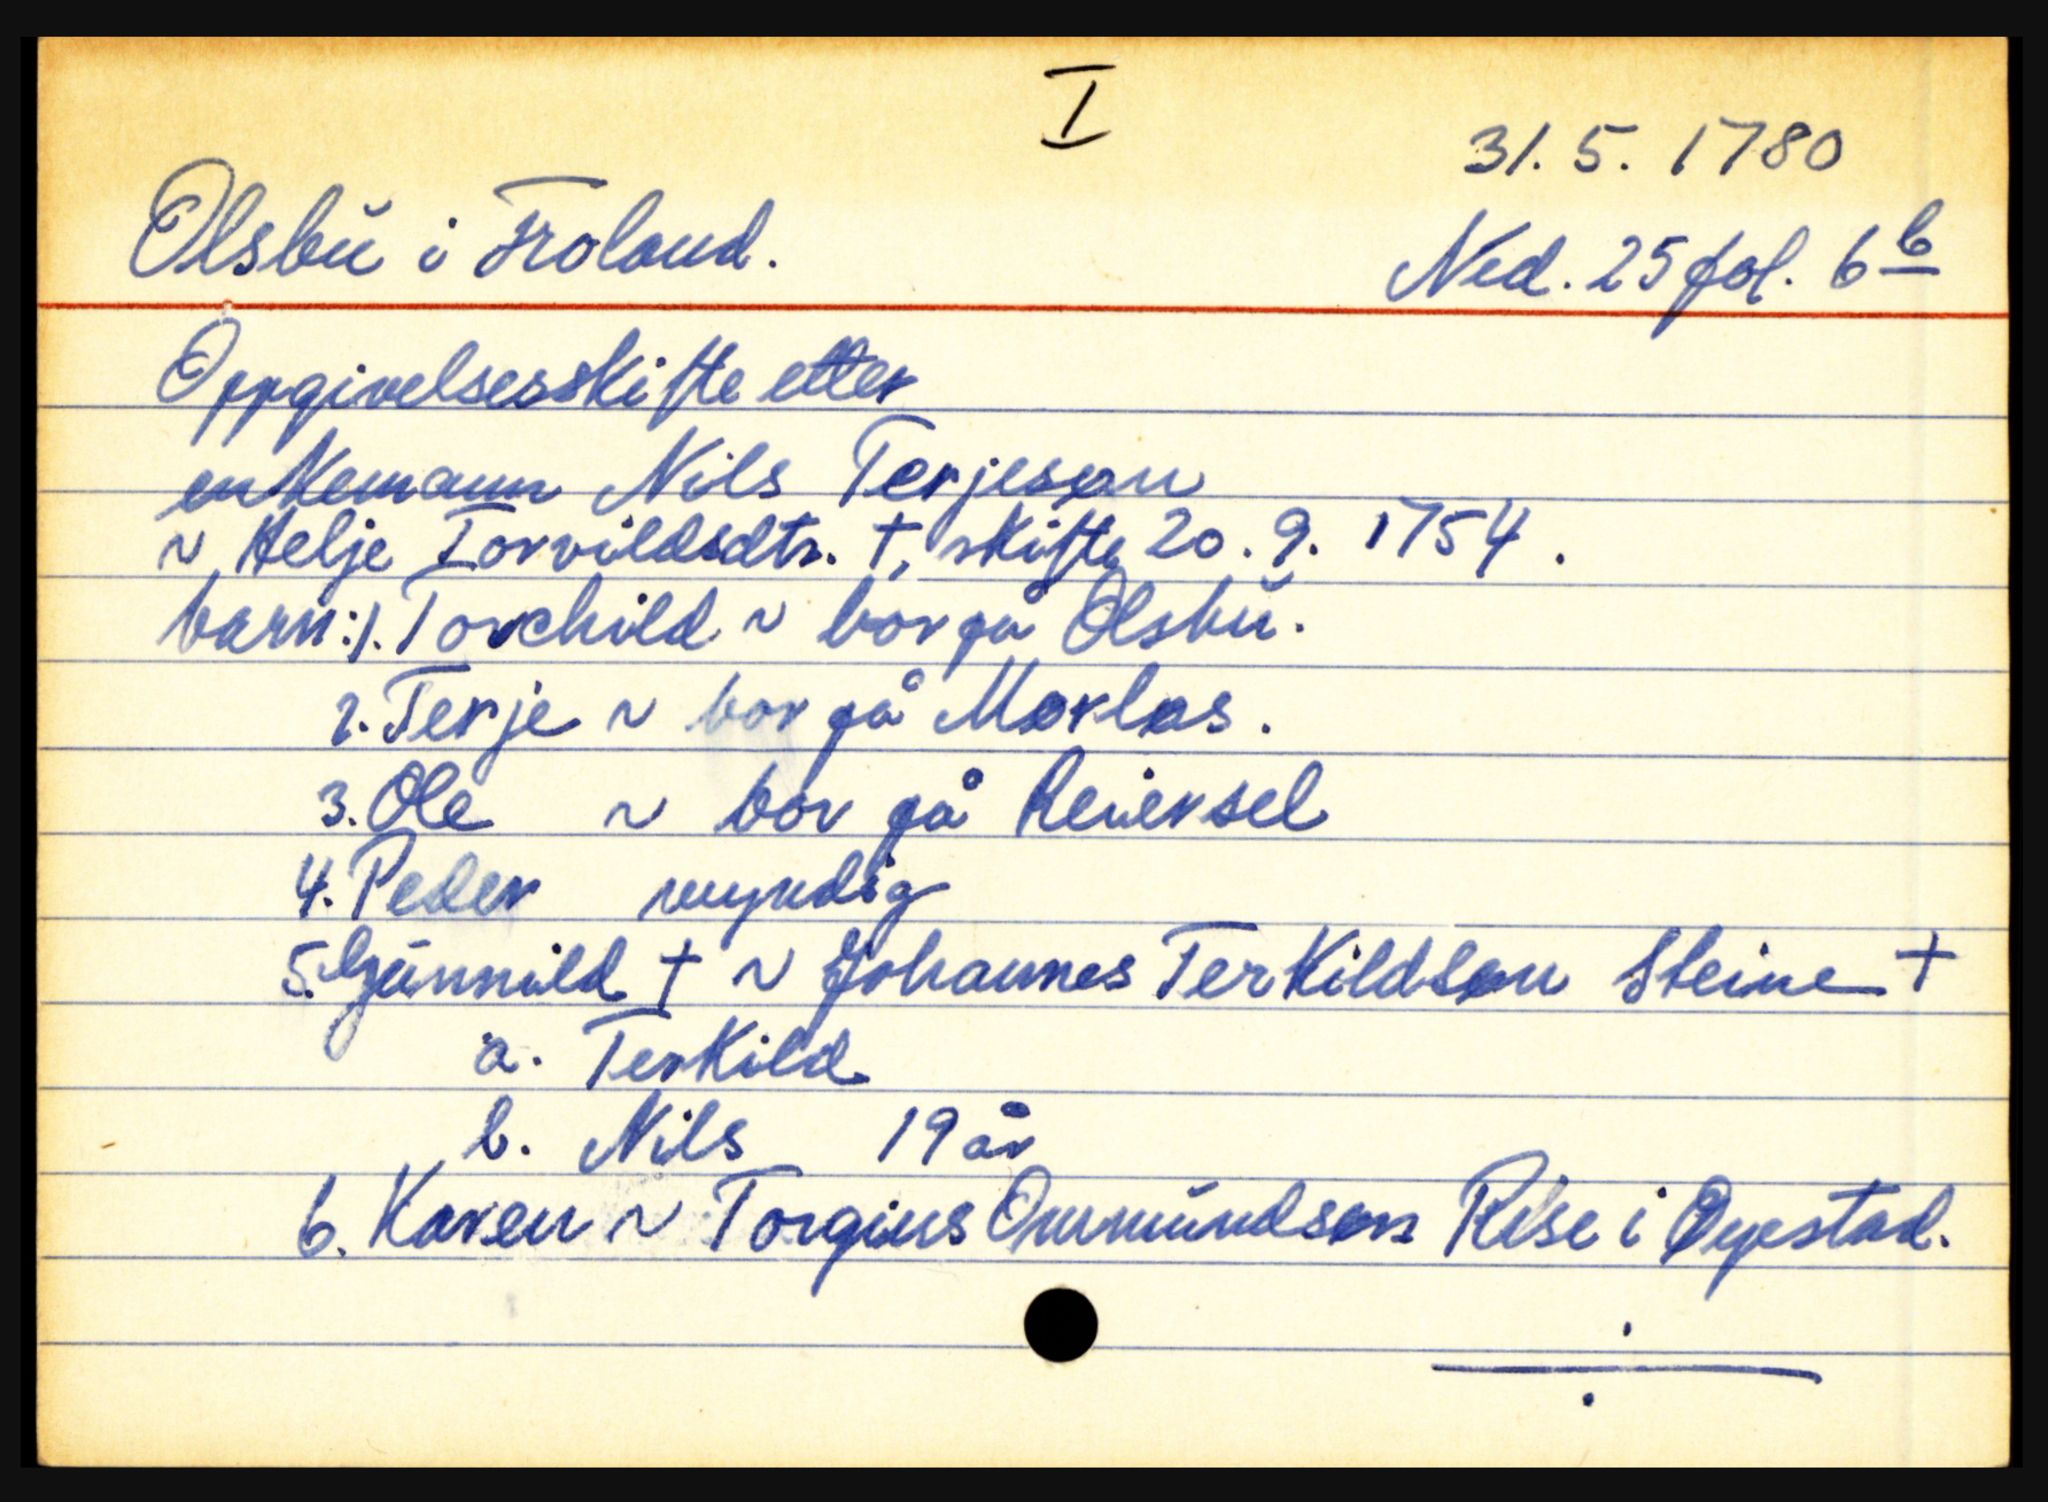 I
31. 5. 1780
Olsbŭ i Froland.
Ned. 25 fol. 6 b
Oppgivelsesskifte etter
enkemann Nils Terjesøn
~ Helje Torvildsdtr. †, skifte 20. 9. 1754.
barn: 1. Torchild ~ bor på Olsbŭ.
2. Terje ~ bor på Morløs.
3. Ole ~ bor på Reiersel
4. Peder myndig
5. Gŭnnild † ~ Johannes Terkildsøn Steine †
a. Terkild
b. Nils 19 år
6. Karen ~ Torgius Ommŭndsøn Rise i Øyestad.